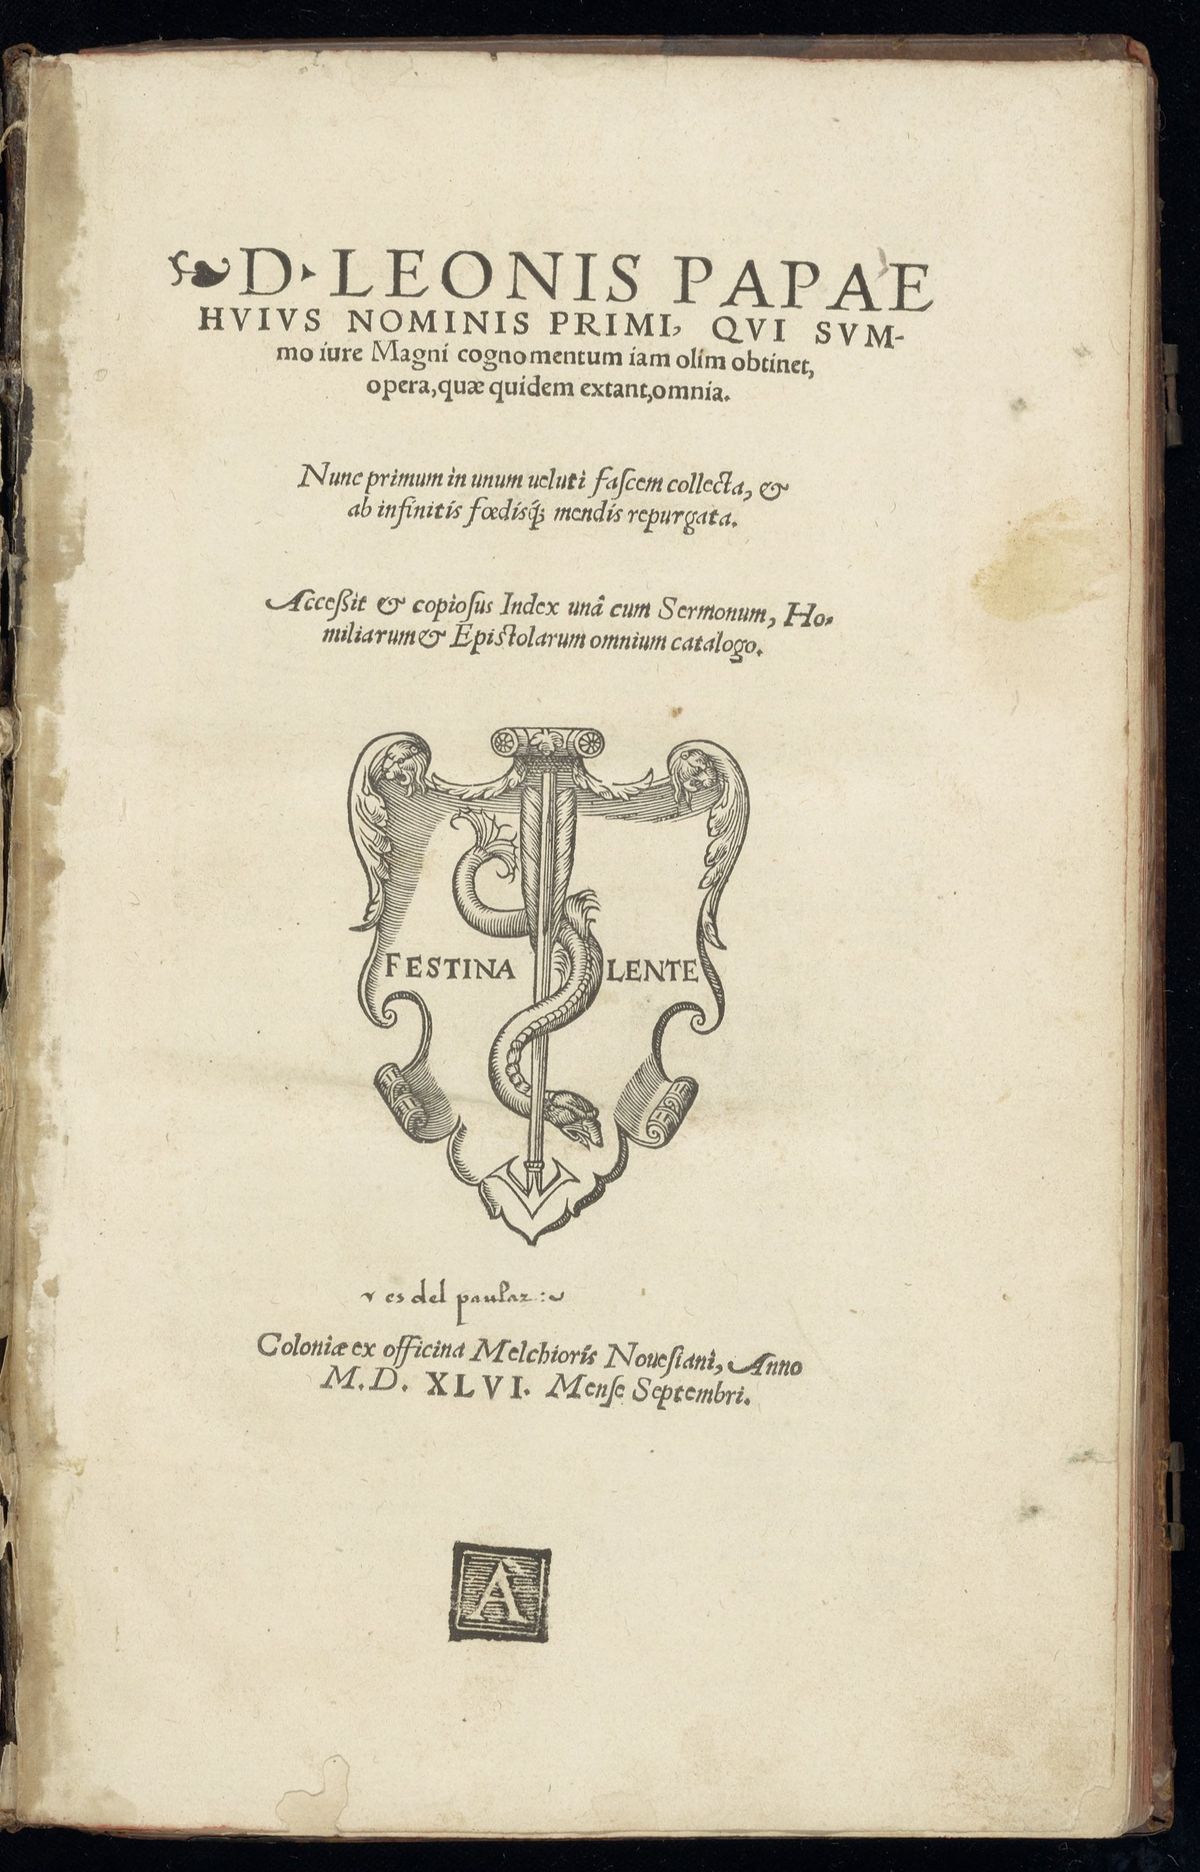 ❧ D. LEONIS PAPAE
HVIVS NOMINIS PRIMI, QVI SVM-
mo iure Magni cognomentum iam olim obtinet,
opera, quæ quidem extant, omnia.
Nunc primum in unum ueluti faſcem collecta, &
ab infinitis fœdisq́; mendis repurgata.
Acceßit & copioſus Index unâ cum Sermonum, Ho-
miliarum & Epiſtolarum omnium catalogo.
FESTINA LENTE
es del paular
Coloniæ ex officina Melchioris Noueſiani, Anno
M.D. XLVI. Menſe Septembri.
A